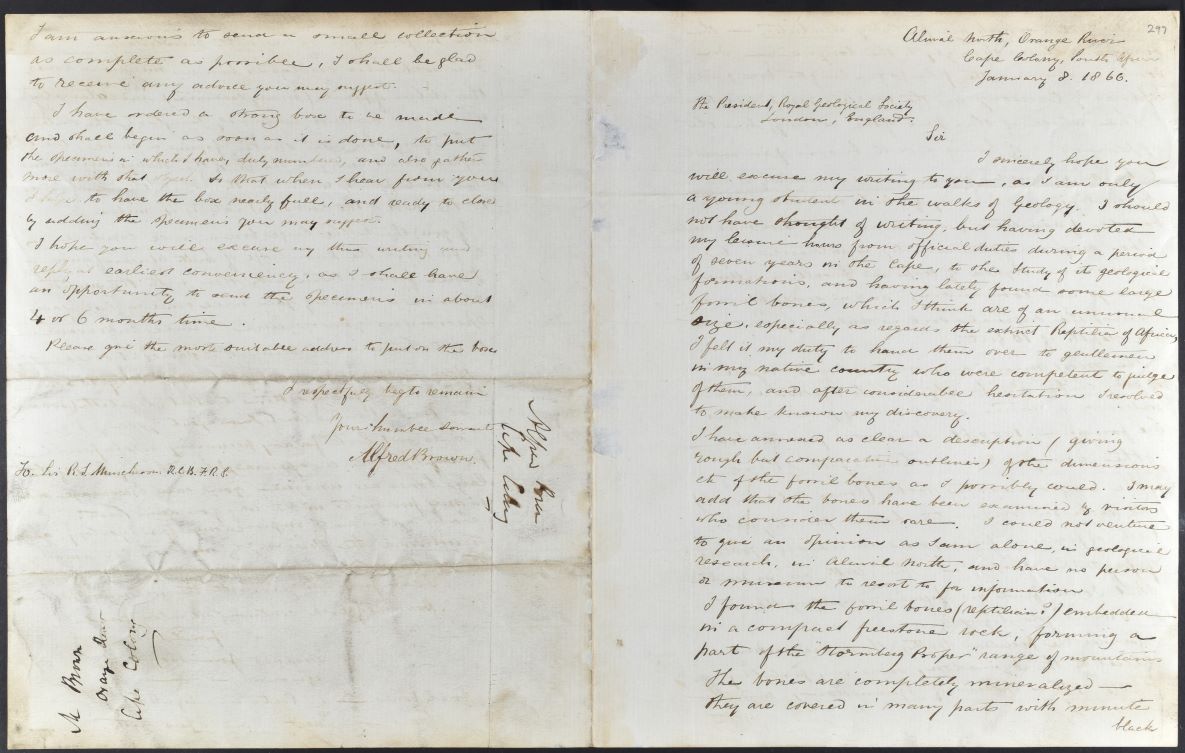 297
Aliwal North, Orange River
Cape Colony, South Africa
January 8. 1866.
The President, Royal Geological Society
London, England.
Sir
I sincerely hope you
will excuse my writing to you, as I am only
a young student in the walks of Geology. I should
not have thought of writing, but having devoted
my leisure hours from official duties during a period
of seven years in the Cape, to the study of its geological
formations, and having lately found some large
fossil bones, which I think are of an unusual
size, especially as regards the extinct Reptilia of Africa,
I felt it my duty to hand them over to gentlemen
in my native country who were competent to judge
of them, and after considerable hesitation I resolved
to make known my discovery.
I have annexed as clear a description (giving
rough but comparative outlines) of the dimensions
etc of the fossil bones as I possibly could. I may
add that the bones have been examined by visitors
who consider them rare. I could not venture
to give an opinion as I am alone, in geological
research, in Aliwal North, and have no person
or museum to resort to for information
I found the fossil bones (reptilian?) embedded
in a compact freestone rock, forming a
part of the "Stormberg Proper" range of mountains
The bones are completely mineralized —
they are covered in many parts with minute
black
I am anxious to send a small collection
as complete as possible, I shall be glad
to receive any advice you may suggest.
I have ordered a strong box to be made
and shall begin as soon as it is done, to put
the specimens in which I have, duly numbered, and also gather
more with that so that when I hear from you
I hope to have the box nearly full, and ready to close
by adding the specimens you may suggest.
I hope you will excuse my thus writing and
reply at earliest conveniency, as I shall have
an opportunity to send the specimens in about
4 or 6 months time.
Please give the most suitable address to put on the box
I respectfully beg to remain
Your humble servant
Alfred Brown.
To Sir R I Murchison K.C.B. F.R.S.
Alfred Brown
Cape Colony
A Brown
Orange River
Cape Colony